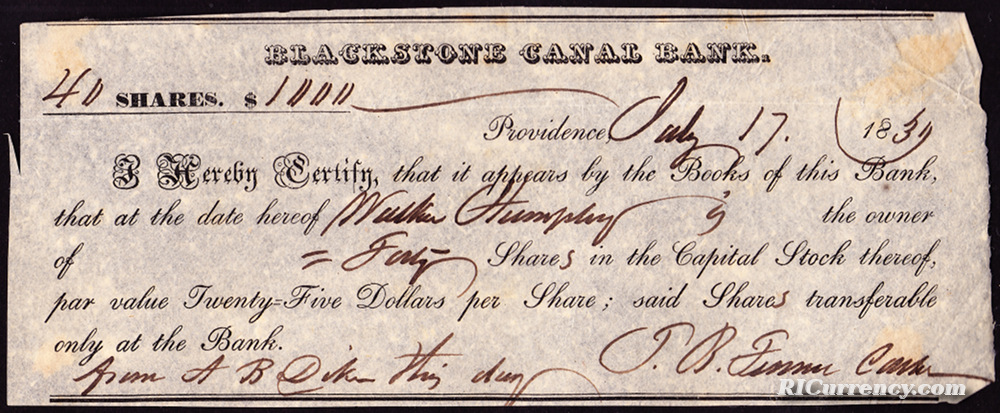 BLACKSTONE CANAL BANK.
40 SHARES. $ 1000
Providence, July 17. 18
I Hereby Certify, that it appears by the Books of this Bank,
that at the date hereof Walker Humphrey is the owner
of = Forty Shares in the Capital Stock thereof,
par value Twenty=Five Dollars per Share; said Shares transferable
only at the Bank.
T. B. Fenner Cashr
from A B Dike this day
RICurrency.com